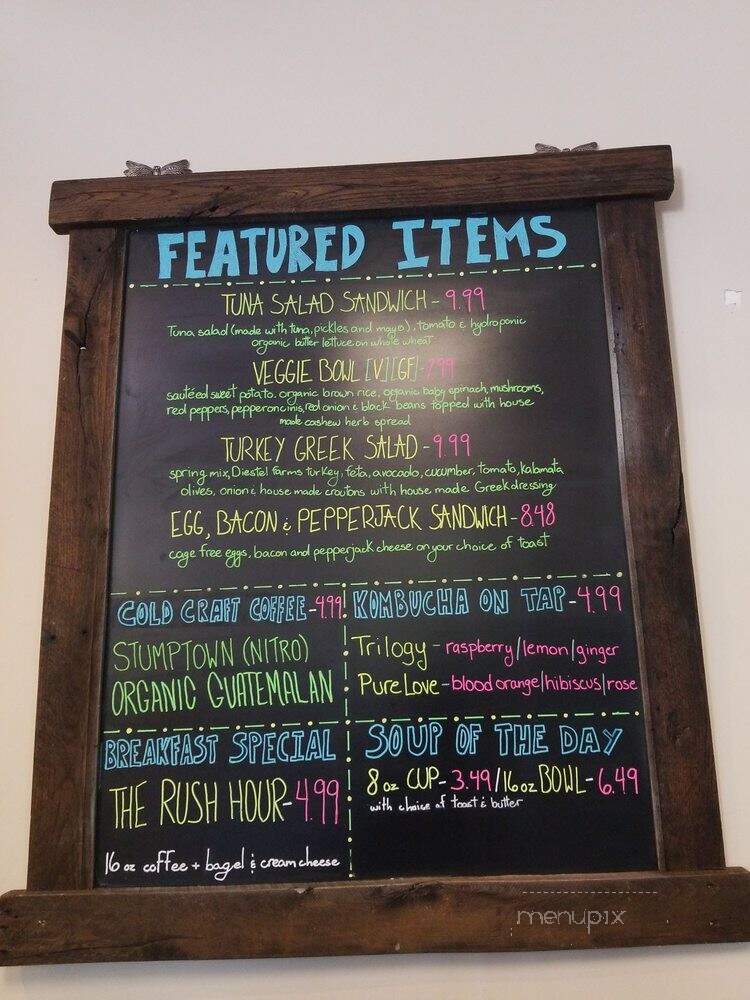 FEATURED ITEMS
TUNA SALAD SANDWICH - 9.99
Tuna salad (made with tuna, pickles and mayo), tomato & hydroponic
organic butter lettuce on whole wheat
VEGGIE BOWL [V][GF] - 7.99
sautéed sweet potato. organic brown rice, organic baby spinach, mushrooms,
red peppers, pepperoncinis, red onion & black beans topped with house
made cashew herb spread
TURKEY GREEK SALAD - 9.99
spring mix, Diestel farms turkey, feta, avocado, cucumber, tomato, kalamata
olives, onion & house made croutons with house made Greek dressing
EGG, BACON & PEPPERJACK SANDWICH - 8.48
cage free eggs, bacon and pepperjack cheese on your choice of toast
COLD CRAFT COFFEE - 4.99
STUMPTOWN (NITRO)
ORGANIC GUATEMALAN
KOMBUCHA ON TAP - 4.99
Trilogy - raspberry/lemon/ginger
Pure Love - blood orange/hibiscus/rose
BREAKFAST SPECIAL
THE RUSH HOUR - 4.99
16 oz coffee + bagel & cream cheese
SOUP OF THE DAY
8 oz CUP - 3.49 / 16 oz BOWL - 6.49
with choice of toast & butter
menupix